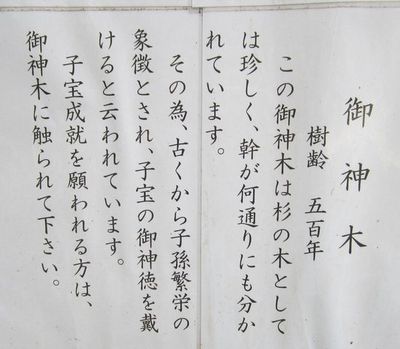 御神木
樹齢 五百年
この御神木は杉の木として
は珍しく、幹が何通りにも分か
れています。
その為、古くから子孫繁栄の
象徴とされ、子宝の御神徳を戴
けると云われています。
子宝成就を願われる方は、
御神木に触られて下さい。